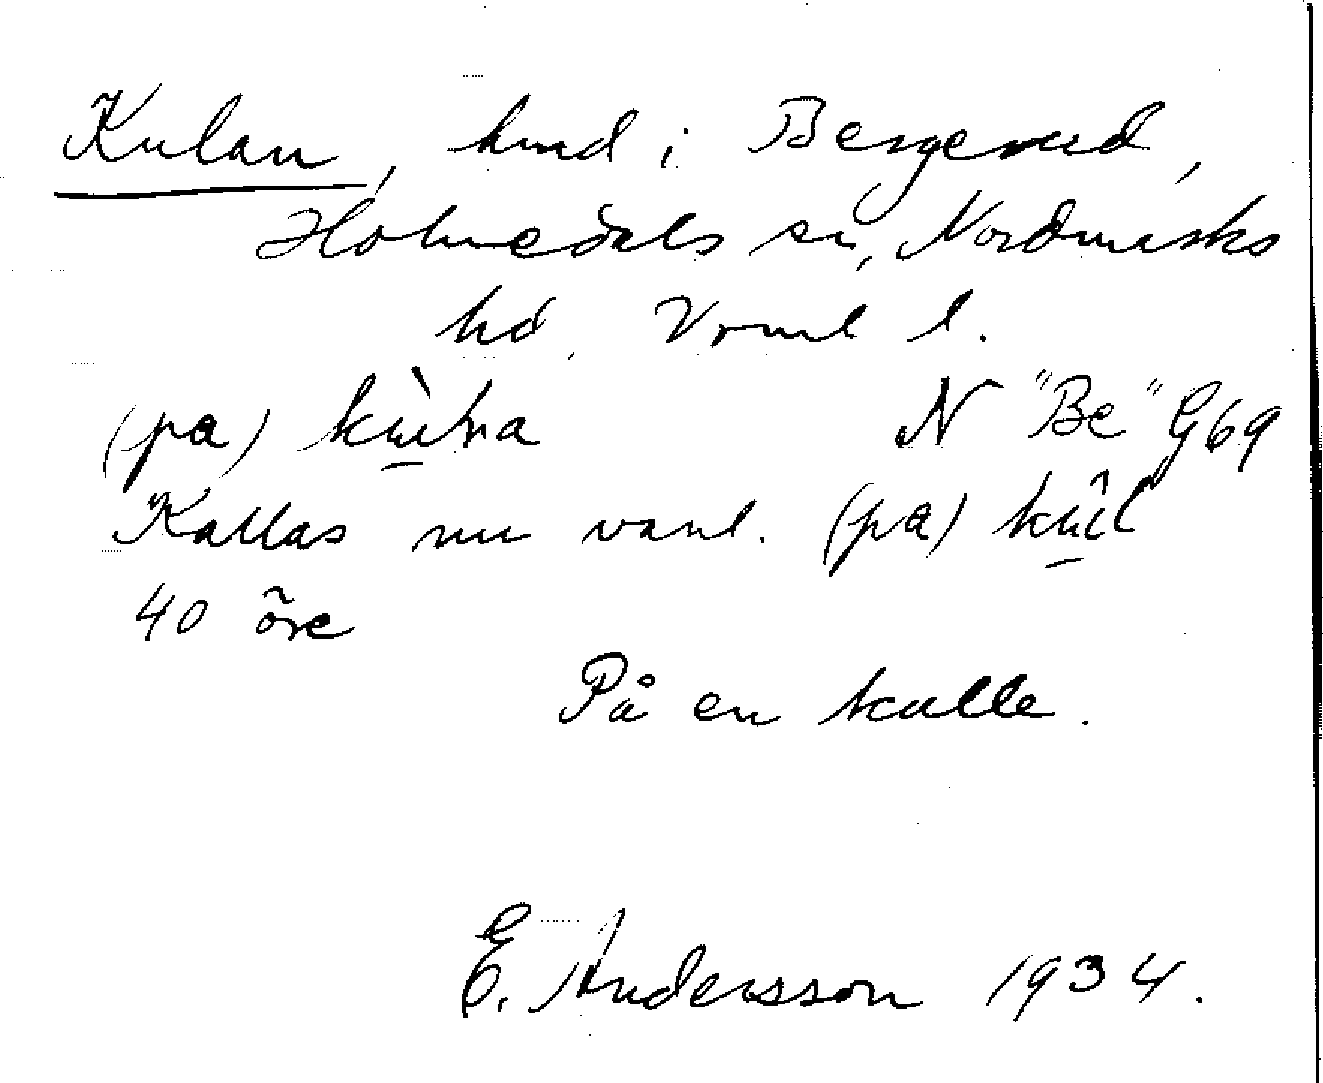 Kulan, hmd i Bergerud,
Holmedals sn, Nordmarks
hd, Värml l.
(pa) kùlna N "Be" G69
Kallas nu vanl. (pa) kûl
40 öre
På en kulle.
E. Andersson 1934.